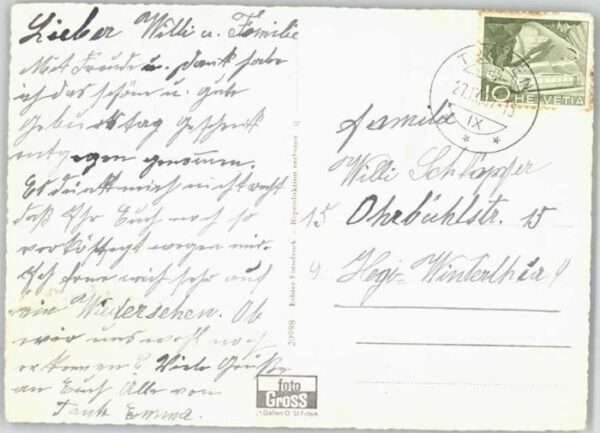 Lieber Willi u. Familie
Mit Freude u. Dank habe
ich das schöne u. gute
Geburtstag Geschenk
entgegen genommen.
Es dünkt mich nicht recht
daß Ihr Euch noch so
verköstigt wegen mir.
Ich freue mich sehr auf
ein Wiedersehen. Ob
wir uns wohl noch
erkennen? Viele Grüße
an Euch Alle von
Tante Emma.
20998 Echter Fotodruck - Reproduktion verboten
foto
Gross
St. Gallen
10 HELVETIA
IX
Familie
Willi Schläpfer
15 Ohrbühlstr. 15
Hegi-Winterthur